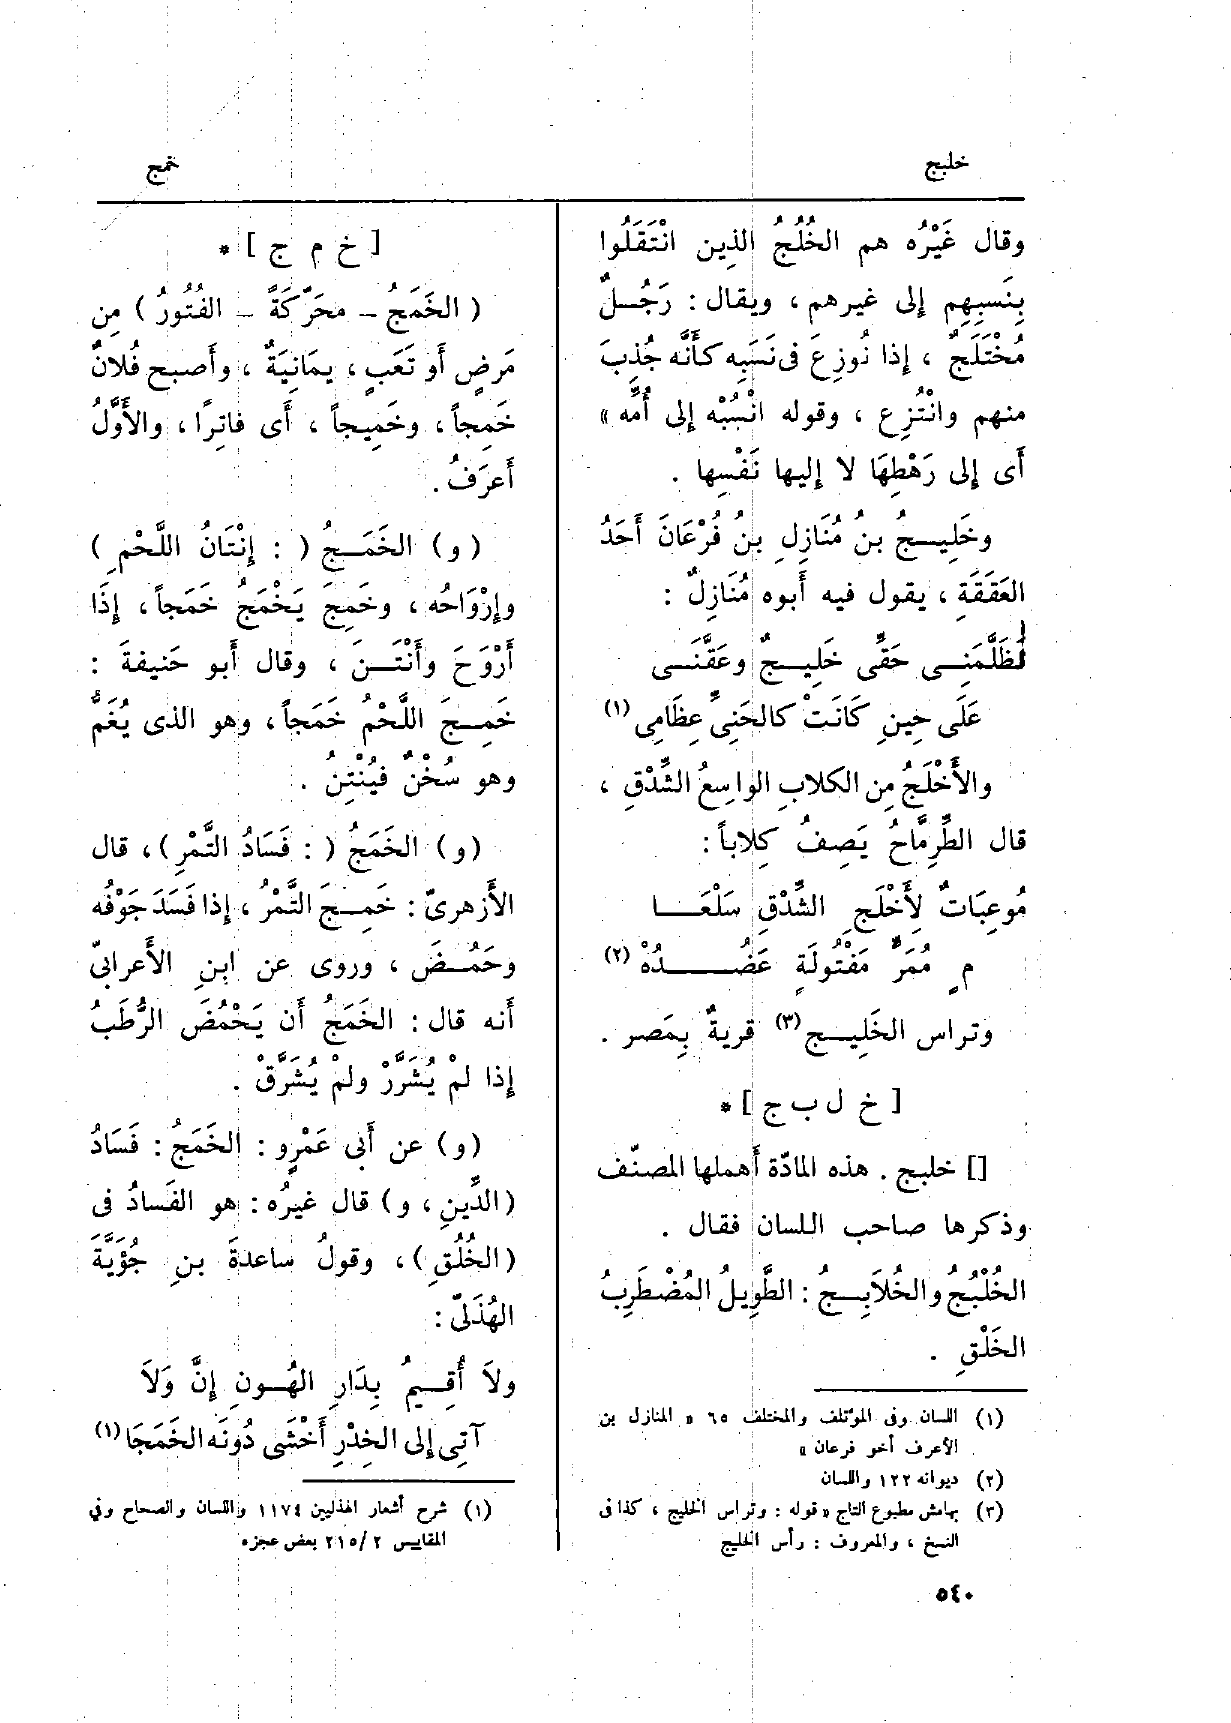 خلبج
خمج
وقال غَيْرُه هم الخُلُجُ الذِين انْتَقَلُوا
بِنَسبِهِم إلى غيرهم ، ويقال : رَجُـلٌ
مُخْتَلَجٌ ، إذا نُوزِعَ فى نَسَبِه كأَنَّه جُذِبَ
منهم وانْتُزِع ، وقوله انْسُبْه إلى أُمِّه »
أى إلى رَهْطِهَا لا إليها نَفْسِها .
وخَلِيـجُ بنُ مُنَازِلِ بنُ فُرْعَانَ أَحَدُ
العَقَقَةِ ، يقول فيه أَبوه مُنَازِلٌ :
تَظَلَّمَنِـى حَقِّى خَلِيـجٌ وعَقَّنَـى
عَلَى حِينِ كَانَتْ كالحَنِىِّ عِظَامِى (١)
والأَخْلَجُ مِن الكلابِ الواسِعُ الشِّدْقِ ،
قال الطِّرِمّاحُ يَصِفُ كِلاباً :
مُوعِبَاتٌ لِأَخْلَجِ الشِّدْقِ سَلْعَـا
مٍ مُمَرٍّ مَفْتُولَةٍ عَضُـدُهْ (٢)
وتراس الخَلِيـج (٣) قريةٌ بِمَصر .
[ خ ل ب ج ] *
[] خلبج . هذه المادّة أَهملها المصنّف
وذكرها صاحب اللسان فقال .
الخُلْبُجُ والخُلاَبِـجُ : الطَّوِيلُ المُضْطَرِبُ
الخَلْقِ .
(١) اللسان وفى المؤتلف والمختلف ٦٥ « المنازل بن
الأعرف أخو فرعان »
(٢) ديوانه ١٢٢ واللسان
(٣) بهامش مطبوع التاج « قوله : وتراس الخليج ، كذا فى
النسخ ، والمعروف : رأس الخليج
[ خ م ج ] *
( الخَمَجُ ـ محَرّكَةً ـ الفُتُورُ ) مِن
مَرضٍ أَو تَعَبٍ ، يمَانِيَةٌ ، وأَصبح فُلانٌ
خَمِجاً ، وخَمِيجاً ، أَى فاتِرًا ، والأَوَّلُ
أَعرَفُ .
( و ) الخَمَـجُ ( : إِنْتَانُ اللَّحْمِ )
وإِرْوَاحُه ، وخَمِجَ يَخْمَجُ خَمَجاً ، إِذَا
أَرْوَحَ وأَنْتَـنَ ، وقال أَبو حَنيفةَ :
خَمِـجَ اللَّحْمُ خَمَجاً ، وهو الذى يُغَمُّ
وهو سُخْنٌ فيُنْتِنُ .
( و ) الخَمَجُ ( : فَسَادُ التَّمْرِ ) ، قال
الأَزهرىّ : خَمِـجَ التَّمْرُ ، إِذا فَسَدَ جَوْفُه
وحَمُـضَ ، وروى عن ابنِ الأَعرابىّ
أنه قال : الخَمَجُ أَن يَحْمُضَ الرُّطَبُ
إِذا لمْ يُشَرَّرْ ولمْ يُشَرَّقْ .
( و ) عن أَبى عَمْرٍو : الخَمَجُ : فَسَادُ
( الدِّينِ ، و ) قال غيرُه : هو الفَسادُ فى
( الخُلُقِ ) ، وقولُ ساعدةَ بنِ جُؤَيَّةَ
الهُذَلىّ :
ولاَ أُقِـيمُ بِدَارِ الهُـونِ إِنَّ وَلاَ
آتِى إِلى الخِدْرِ أَخْشَى دُونَه الخَمَجَا (١)
(١) شرح أشعار الهذليين ١١٧٤ واللسان والصحاح وفي
المقاييس ٢ / ٢١٥ بعض عجزه
٥٤٠